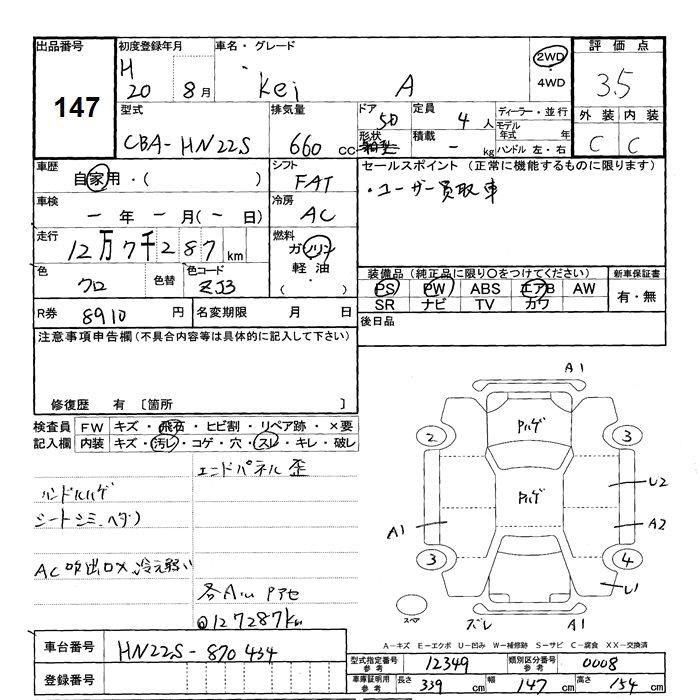 出品番号 初度登録年月 車名・グレード 評価点
147 H 20 8月 Kei A 2WD ・ 4WD 3.5
型式 排気量 ドア 定員 ディーラー・並行 外装 内装
CBA-HN22S 660 cc 5D 4 人 モデル年式 年 C C
形状 積載 - kg ハンドル 左・右
車歴 シフト セールスポイント(正常に機能するものに限ります)
自家用・( ) FAT ・ユーザー買取車
車検 冷房
- 年 - 月(- 日) AC
走行 燃料
12万7千287km ガソリン 軽油 ( ・ )
色 色替 色コード 装備品(純正品に限り○をつけてください) 新車保証書
クロ ZJ3 PS PW ABS エアB AW 有・無
SR ナビ TV カワ
R券 8910 円 名変期限 月 日 後日品
注意事項申告欄(不具合内容等は具体的に記入して下さい)
修復歴 有 [箇所 ]
検査員記入欄 FW キズ・飛石・ヒビ割・リペア跡・×要
内装 キズ・汚レ・コゲ・穴・スレ・キレ・破レ
エンドパネル歪
ハンドルハゲ
シートシミ、ヘタリ
AC吹出口×、冷え弱い
各A1U Pアセ
@127287km
A1
2 Pハゲ 3
Pハゲ U2
A1 A2
3 4
U1
スペア ズレ A1
A-キズ E-エクボ U-凹み W-補修跡 S-サビ C-腐食 XX-交換済
車台番号 HN22S-870434
登録番号
型式指定番号 参考 12349 類別区分番号 参考 0008
車庫証明用 参考 長さ 339 cm 幅 147 cm 高さ 154 cm